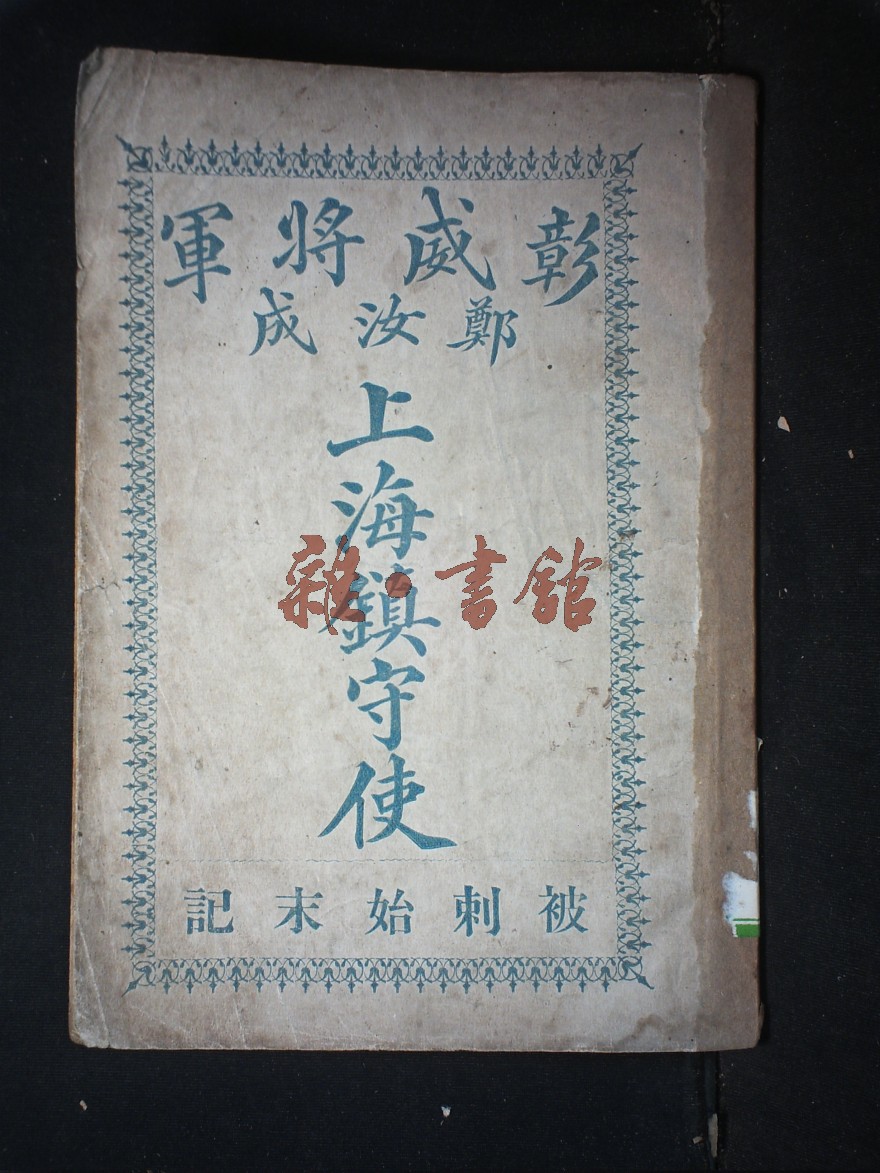 彰威將軍
鄭汝成
上海鎮守使
雜·書館
被刺始末記